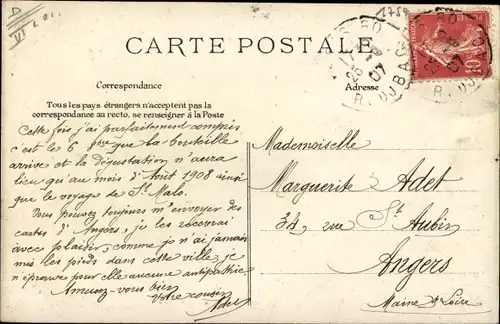 CARTE POSTALE
Correspondance
Adresse
Tous les pays étrangers n'acceptent pas la
correspondance au recto, se renseigner à la Poste
Cette fois j'ai parfaitement compris
c'est les 6 que la bouteille
arrive et la dégustation n'aura
lieu qu'au mois d'Août 1908 ainsi
que le voyage de St. Malo.
Vous pouvez toujours m'envoyer des
cartes d'Angers, je les recevrai
avec plaisir, comme je n'ai jamais
mis les pieds dans cette ville, je
n'éprouve pour elle aucune antipathie
Amusez-vous bien
votre cousin
Adet
Mademoiselle
Marguerite Adet
32, rue St. Aubin
Angers
Maine & Loire
ROUBAIX
25
07
10